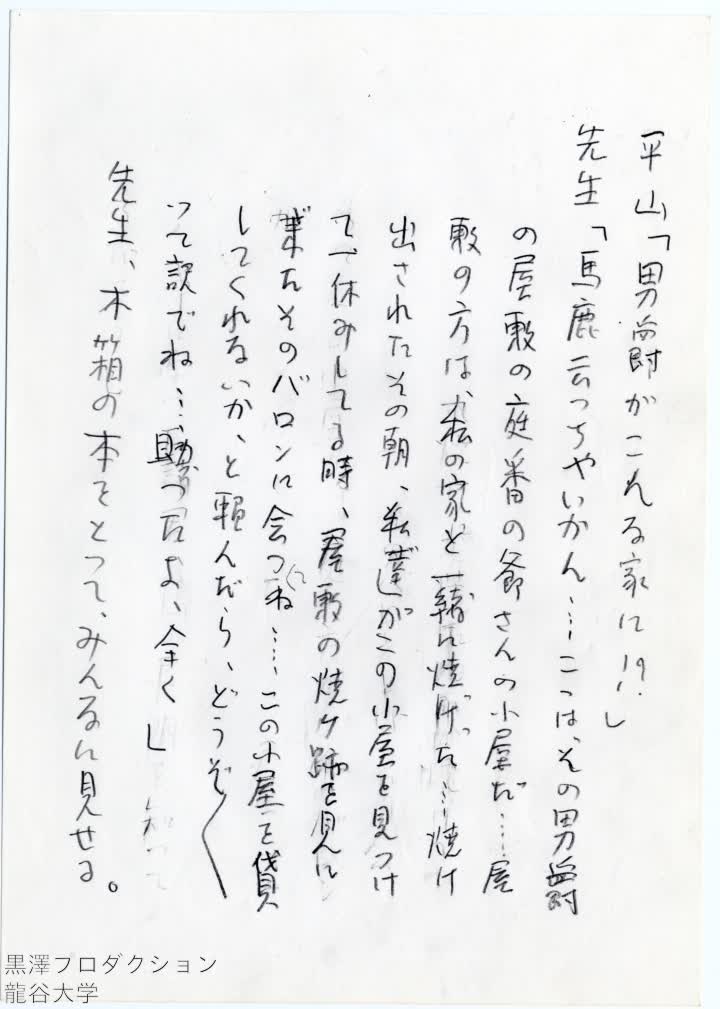 平山「男爵がこんな家に!?」
先生「馬鹿云っちゃいかん…こゝは、その男爵
の屋敷の庭番の爺さんの小屋だ…屋
敷の方は、私の家と一緒に焼けた…焼け
出されたその朝、私達がこの小屋を見つけ
て一休みしてる時、屋敷の焼け跡を見に
来たそのバロンに会ってね……この小屋を貸
してくれないか、と頼んだら、どうぞ〱
って訳でね…助かったよ、全く」
先生、木箱の本をとって、みんなに見せる。
黒澤プロダクション
龍谷大学